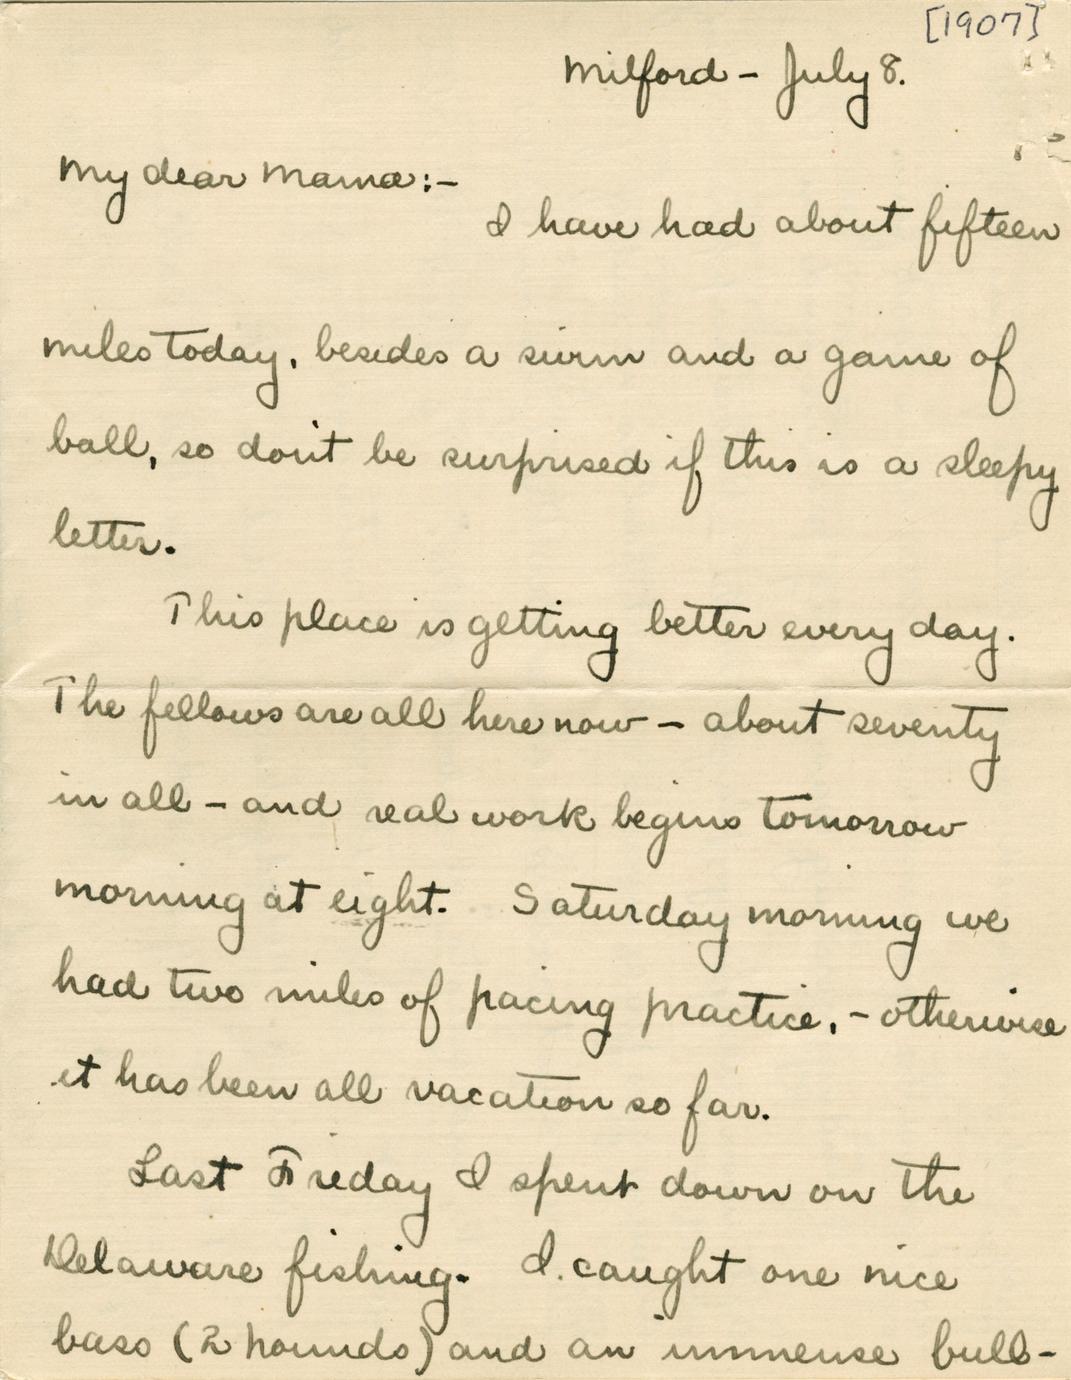 [1907]
Milford - July 8.
My dear Mama:-
I have had about fifteen
miles today, besides a swim and a game of
ball, so don't be surprised if this is a sleepy
letter.
This place is getting better every day.
The fellows are all here now - about seventy
in all - and real work begins tomorrow
morning at eight. Saturday morning we
had two miles of pacing practice, - otherwise
it has been all vacation so far.
Last Friday I spent down on the
Delaware fishing. I caught one nice
bass (2 pounds) and an immense bull-